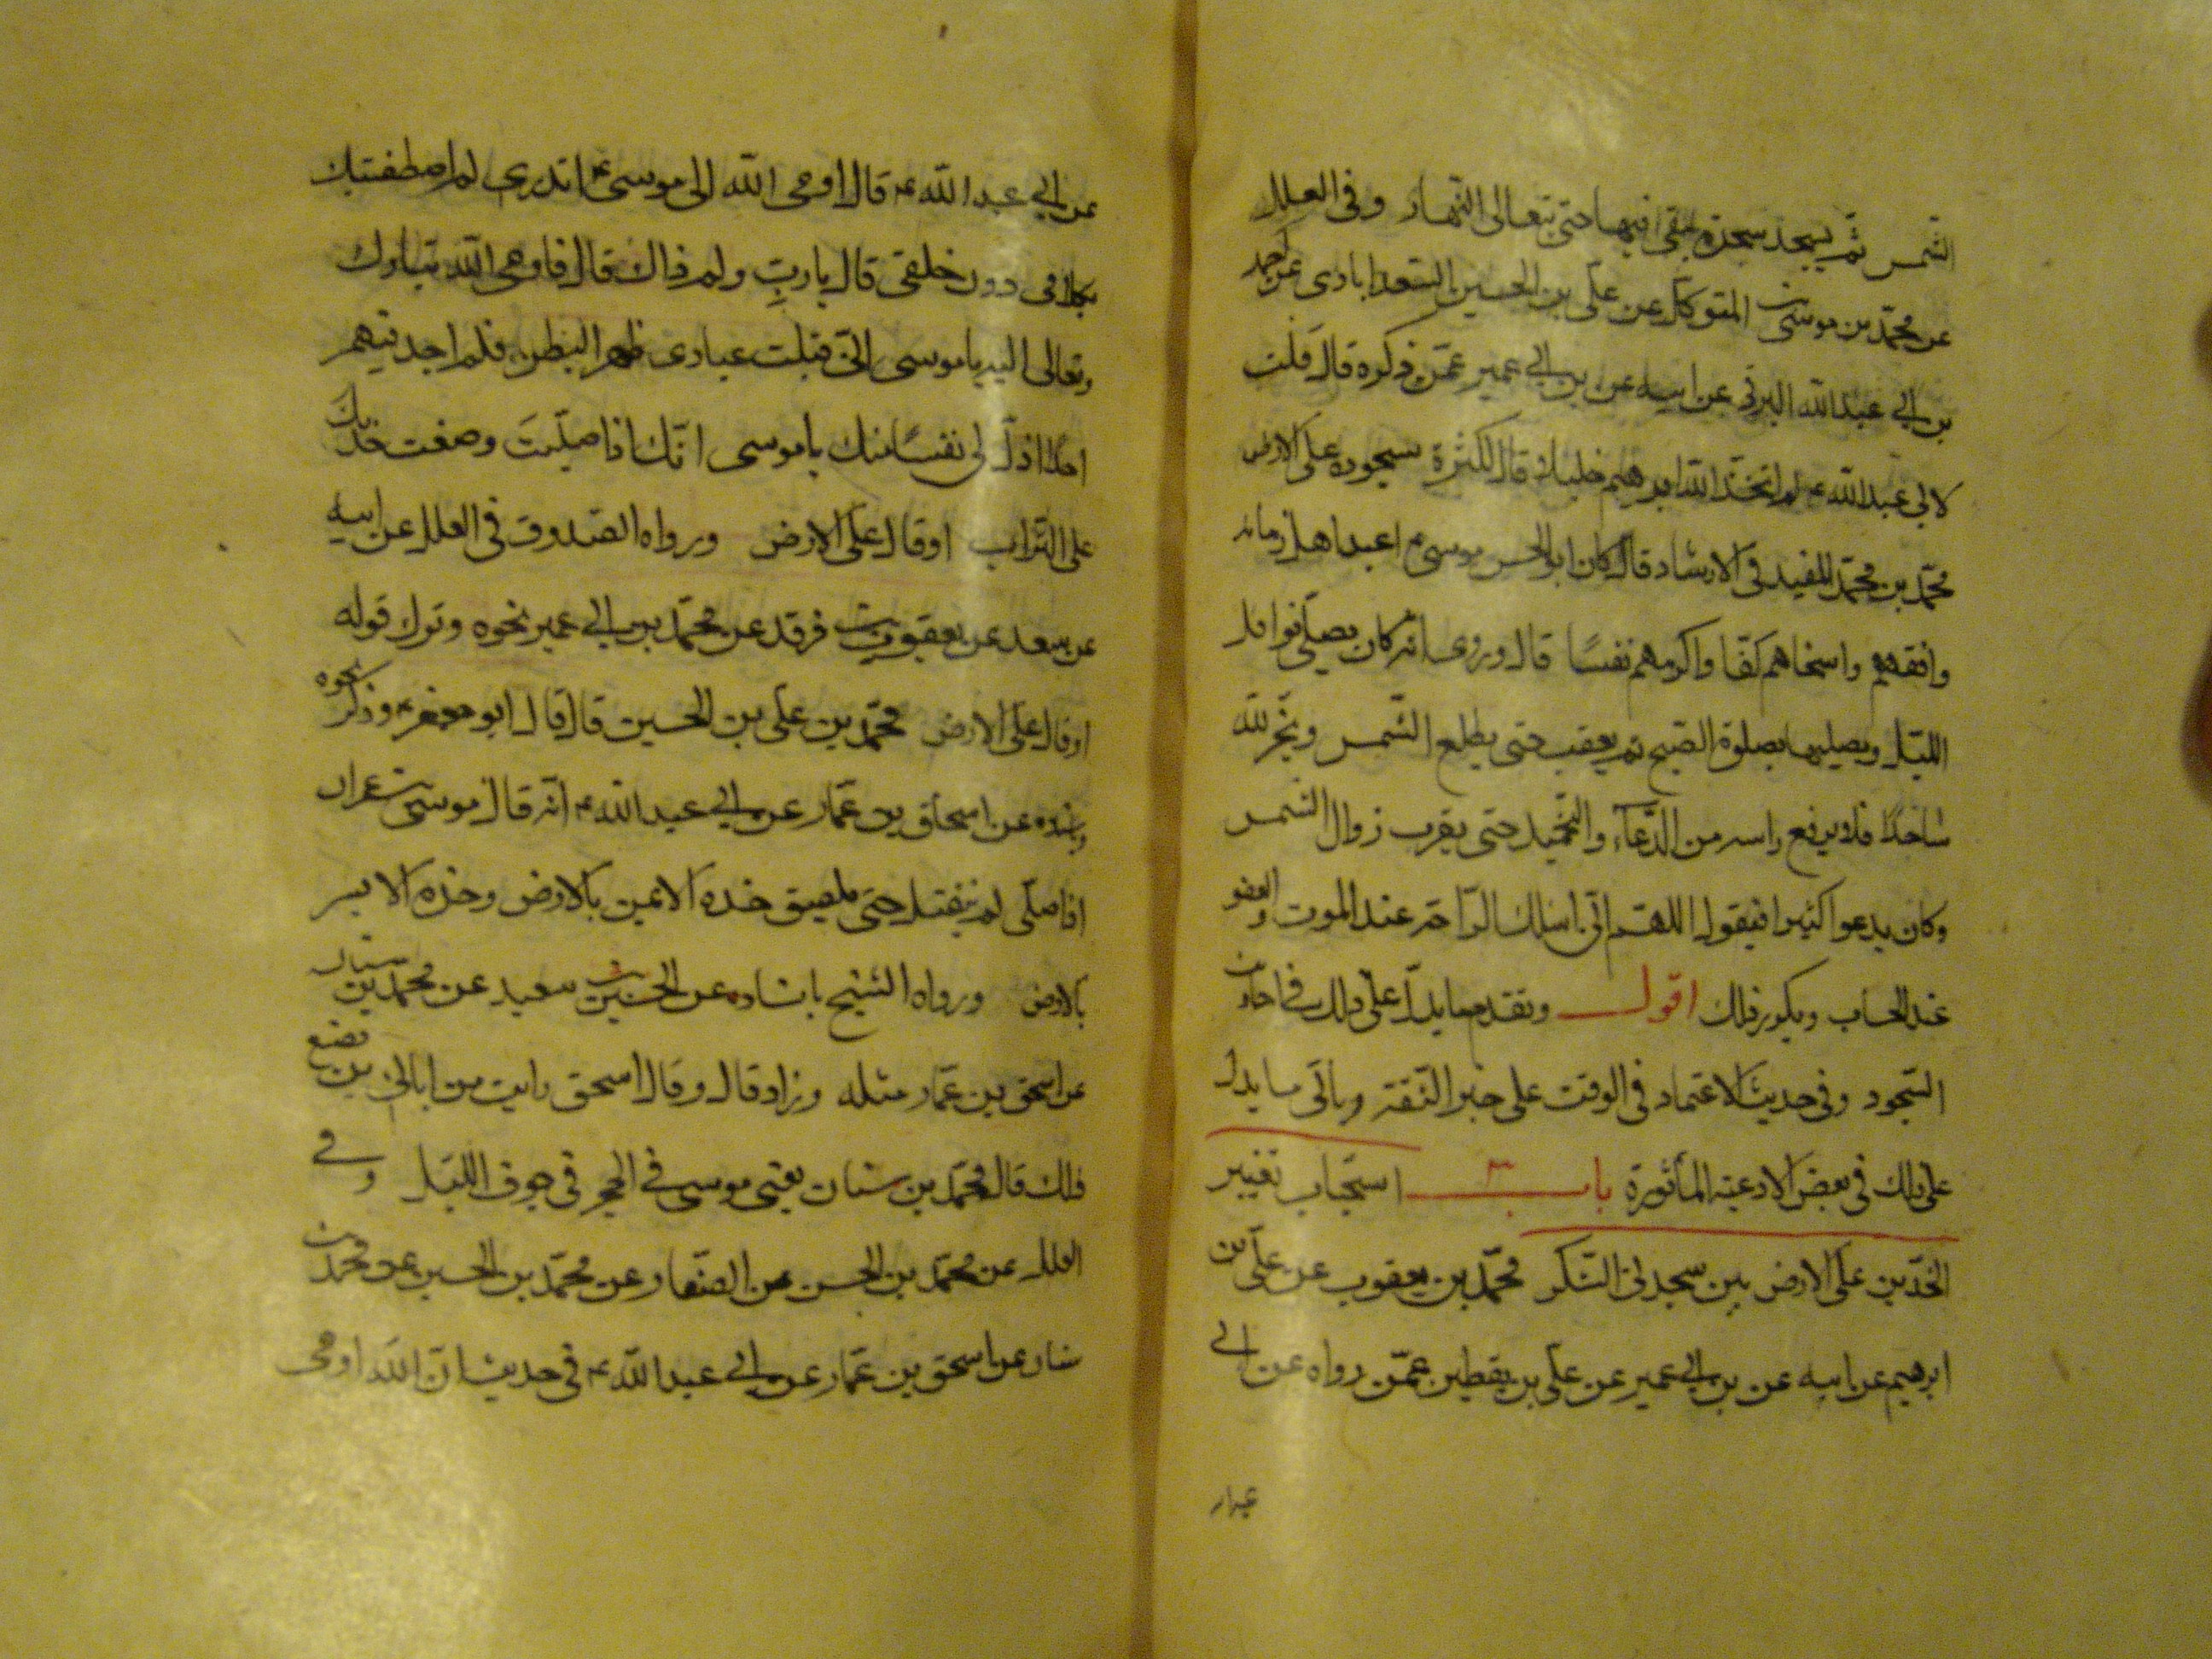 الشمس ثم يسجد سجدة يبقى فيها حتى يتعالى النهار وفى العلل
عن محمد بن موسى بن المتوكل عن على بن الحسين السعدابادى عن احمد
بن ابي عبد الله البرقى عن ابيه عن بن ابي عمير عمن ذكره قال قلت
لابي عبد الله ع لم اتخذ الله ابرهيم خليلا قال لكثرة سجوده على الارض
محمد بن محمد المفيد فى الارشاد قال كان ابو الحسن موسى ع اعبد اهل زمانه
وافقههم واسخاهم كفا واكرمهم نفسًا قال وروى انه كان يصلى نوافل
الليل ويصليها بصلوة الصبح ثم يعقب حتى يطلع الشمس ويخر لله
ساجدًا فلا يرفع راسه من الدعاء والتحميد حتى يقرب زوال الشمس
وكان يدعوا كثيرا فيقول اللهم انى اسئلك الراحة عند الموت والعفو
عند الحساب ويكرر ذلك اقول وتقدم ما يدل على ذلك فى احاديث
السجود وفى حديث الاعتماد فى الوقت على خبر الثقة وياتى ما يدل
على ذلك فى بعض الادعية المأثورة باب ٣ استحباب تعفير
الخدين على الارض بين سجدتى الشكر محمد بن يعقوب عن على بن
ابرهيم عن ابيه عن بن ابي عمير عن على بن يقطين عمن رواه عن ابي
عن ابي عبد الله ع قال اوحى الله الى موسى ع اتدرى لم اصطفيتك
بكلامى دون خلقى قال يا ربِّ ولم ذاك قال فاوحى الله تبارك
وتعالى اليه يا موسى انى قلبت عبادى ظهر البطن فلم اجد فيهم
احدًا اذلّ لى نفسًا منك يا موسى انّك اذا صليتَ وضعت خدك
على التراب اوقال على الارض ورواه الصدوق فى العلل عن ابيه
عن سعد عن يعقوب بن فرقد عن محمد بن ابي عمير نحوه وترك قوله
اوقال على الارض محمد بن على بن الحسين قال قال ابو جعفر ع وذكر نحوه
وباسناده عن اسحاق بن عمّار عن ابي عبد الله ع انه قال موسى بن عمران
اذا صلى لم ينفتل حتى يلصق خده الايمن بالارض وخده الايسر
بالارض ورواه الشيخ باسناده عن الحسين بن سعيد عن محمد بن سنان
عن اسحق بن عمّار مثله وزاد قال وقال اسحق رايت من ابائى من يصنع
ذلك قال محمد بن سنان يعنى موسى فى الحجر فى جوف الليل وفي
العلل عن محمد بن الحسن عن الصفار عن محمد بن الحسين عن محمد بن
سنان عن اسحق بن عمّار عن ابي عبد الله ع فى حديث انّ الله اوحى